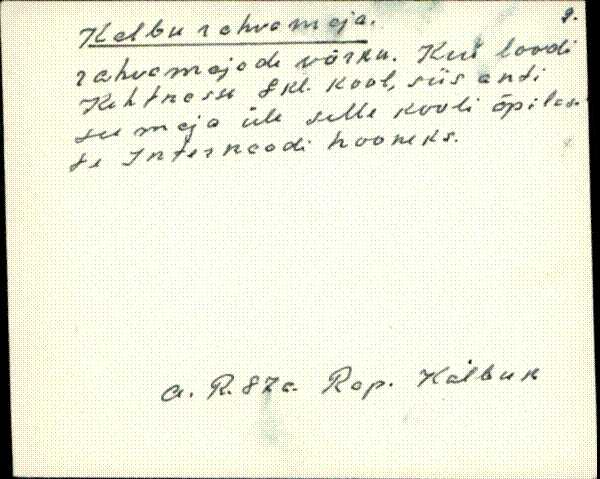 Kalbu rahvamaja. 2.
rahvamajade võrku. Kui loodi
Kehtnasse 8 kl. kool, siis anti
see maja üle selle kooli õpilas-
te Internaadi hooneks.
A. R. 87a. Rap. Kalbu k